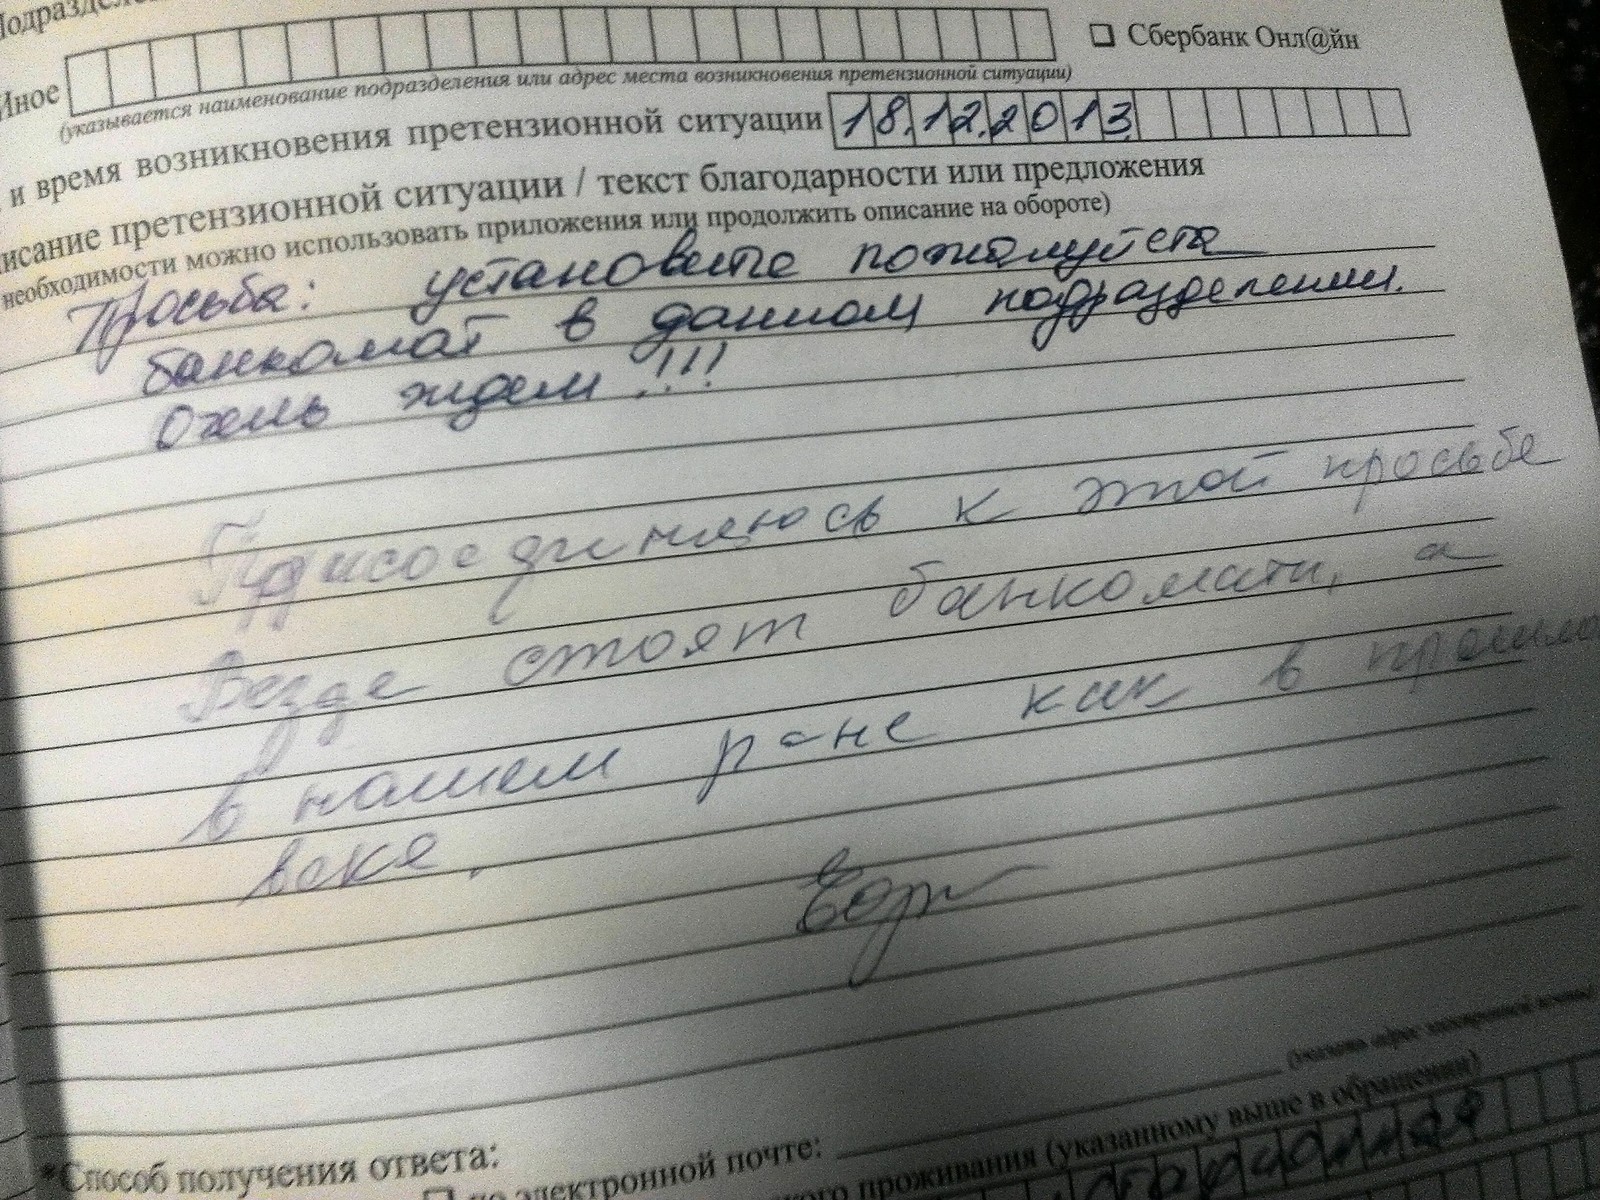 Иное
☐ Сбербанк Онл@йн
(указывается наименование подразделения или адрес места возникновения претензионной ситуации)
и время возникновения претензионной ситуации 18.12.2013
претензионной ситуации / текст благодарности или предложения
необходимости можно использовать приложения или продолжить описание на обороте)
Просьба: установите пожалуйста
банкомат в данном подразделении.
Очень ждем!!!
Присоединяюсь к этой просьбе
Везде стоят банкоматы, а
в нашем р-не как в прошлом
веке.
*Способ получения ответа:
электронной почте:
(указать адрес электронной почты)
проживания (указанному выше в обращении)